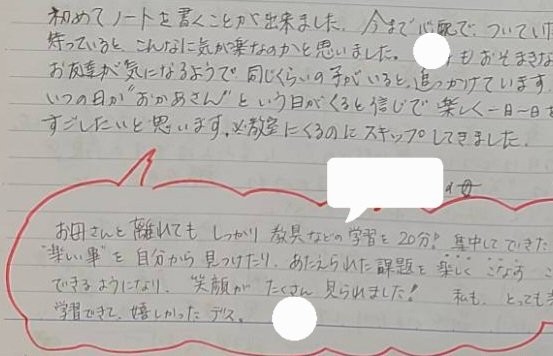 初めてノートを書くことが出来ました。今まで心配で、ついていた
待っていると、こんなに気が楽なのかと思いました。もおそまきな
お友達が気になるようで同じくらいの子がいると、追っかけています。
いつの日か"おかあさん"という日がくると信じて楽しく一日一日を
すごしたいと思います。※教室にくるのにスキップしてきました。
の母
お母さんと離れてもしっかり教具などの学習を20分!集中してできた
"楽しい事"を自分から見つけたり、あたえられた課題を楽しくこなす
できるようになり、笑顔がたくさん見られました!私も、とっても
学習できて、嬉しかったデス。